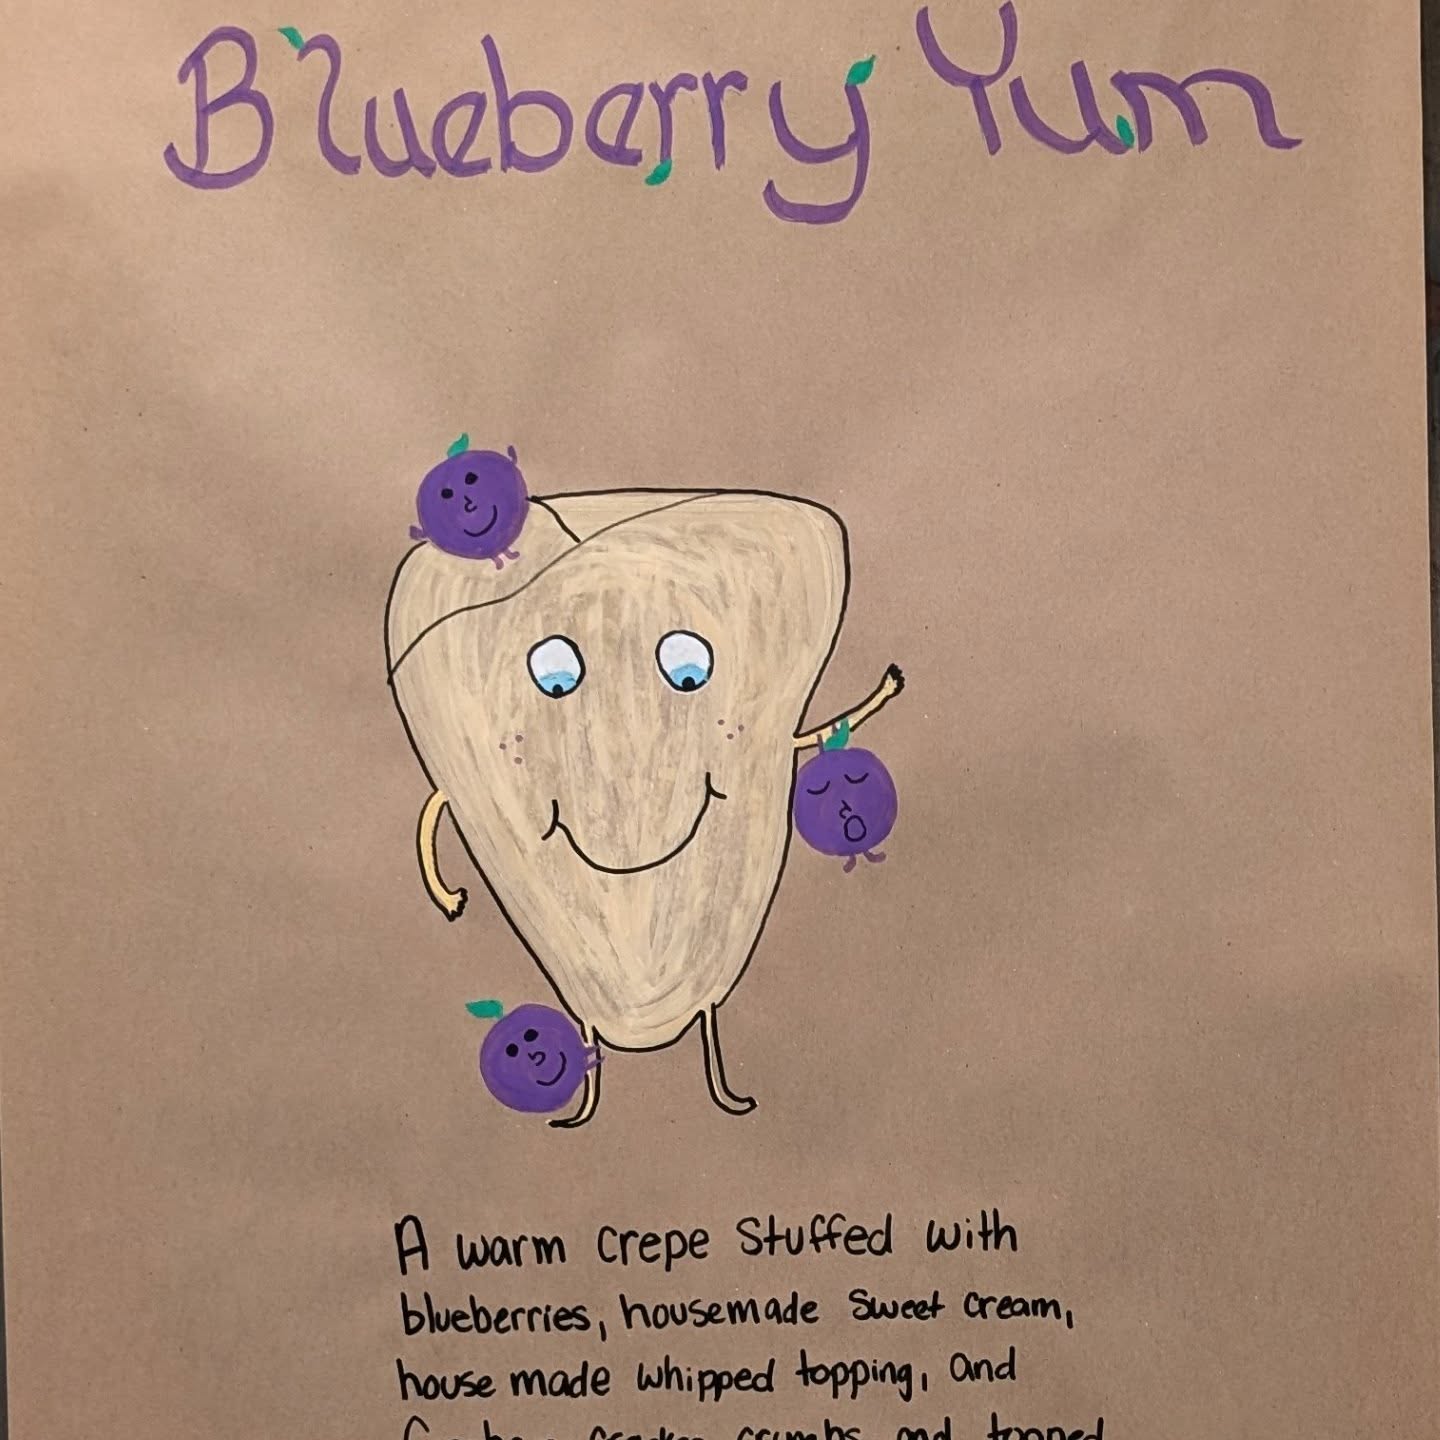 Blueberry Yum
A warm crepe stuffed with
blueberries, housemade sweet cream,
house made whipped topping, and
cracker crumbs and topped